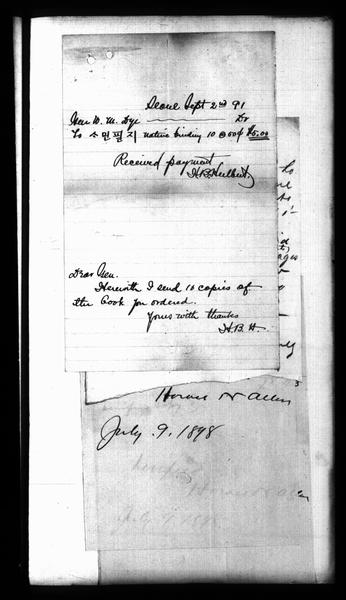 Seoul Sept 2nd 91
Gen W. M. Dye Dr
To 스민필지 native binding 10 @ 50¢ $5.00
Received payment
H. B. Hulbert
Dear Gen.
Herewith I send 10 copies of
the book you ordered.
Yours with thanks
H. B. H.
Horace N Allen
July. 9. 1898
Horace N Allen
July 9 1898